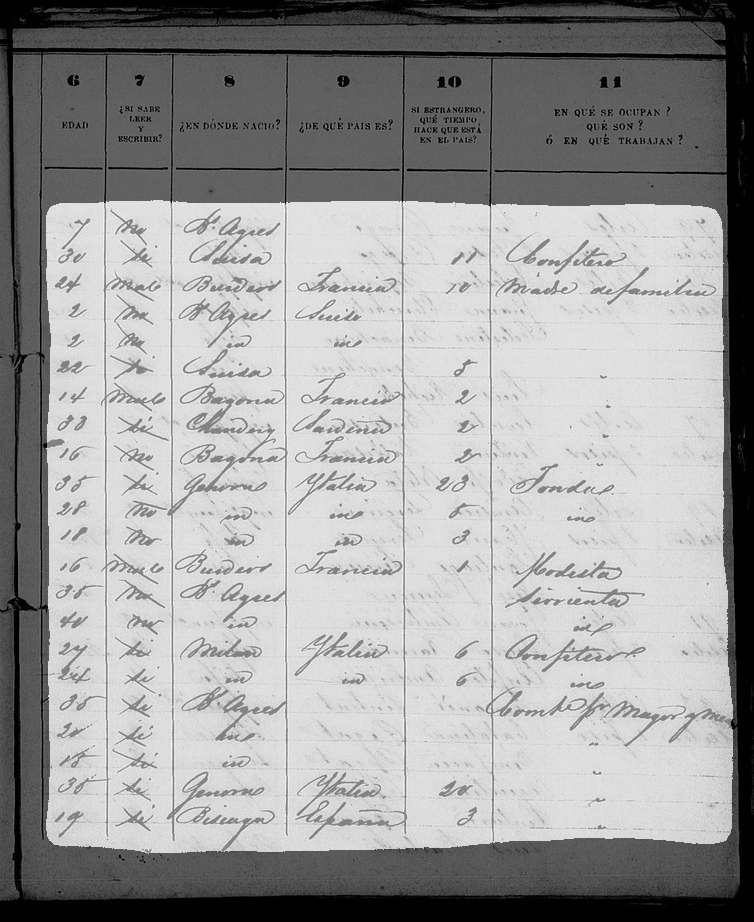 6 7 8 9 10 11
EDAD ¿SI SABE LEER Y ESCRIBIR? ¿EN DÓNDE NACIO? ¿DE QUÉ PAIS ES? SI ESTRANGERO, QUÉ TIEMPO HACE QUE ESTÁ EN EL PAIS? EN QUÉ SE OCUPAN? QUÉ SON? Ó EN QUÉ TRABAJAN?
7 No Bs Ayres
30 Si Suisa 11 Confitero
24 Mal Burdeos Francia 10 Madre de familia
2 No Bs Ayres Suiso
2 No in in
22 Si Suisa 5 "
14 Mal Bayona Francia 2 "
33 Si Sardeña 2 "
16 No Bayona Francia 2 "
35 Si Genova Ytalia 23 Fonda
28 No in in 5 in
18 No in in 3
16 Mal Burdeos Francia 1 Modista
35 No Bs Ayres Sirvienta
40 No in in
27 Si Milan Ytalia 6 Confitero
24 Si in in 6 in
35 Si Bs Ayres Comte pr Mayor y men
20 Si in "
15 Si in "
35 Si Genova Ytalia 20 "
19 Si Biscaya España 3 "